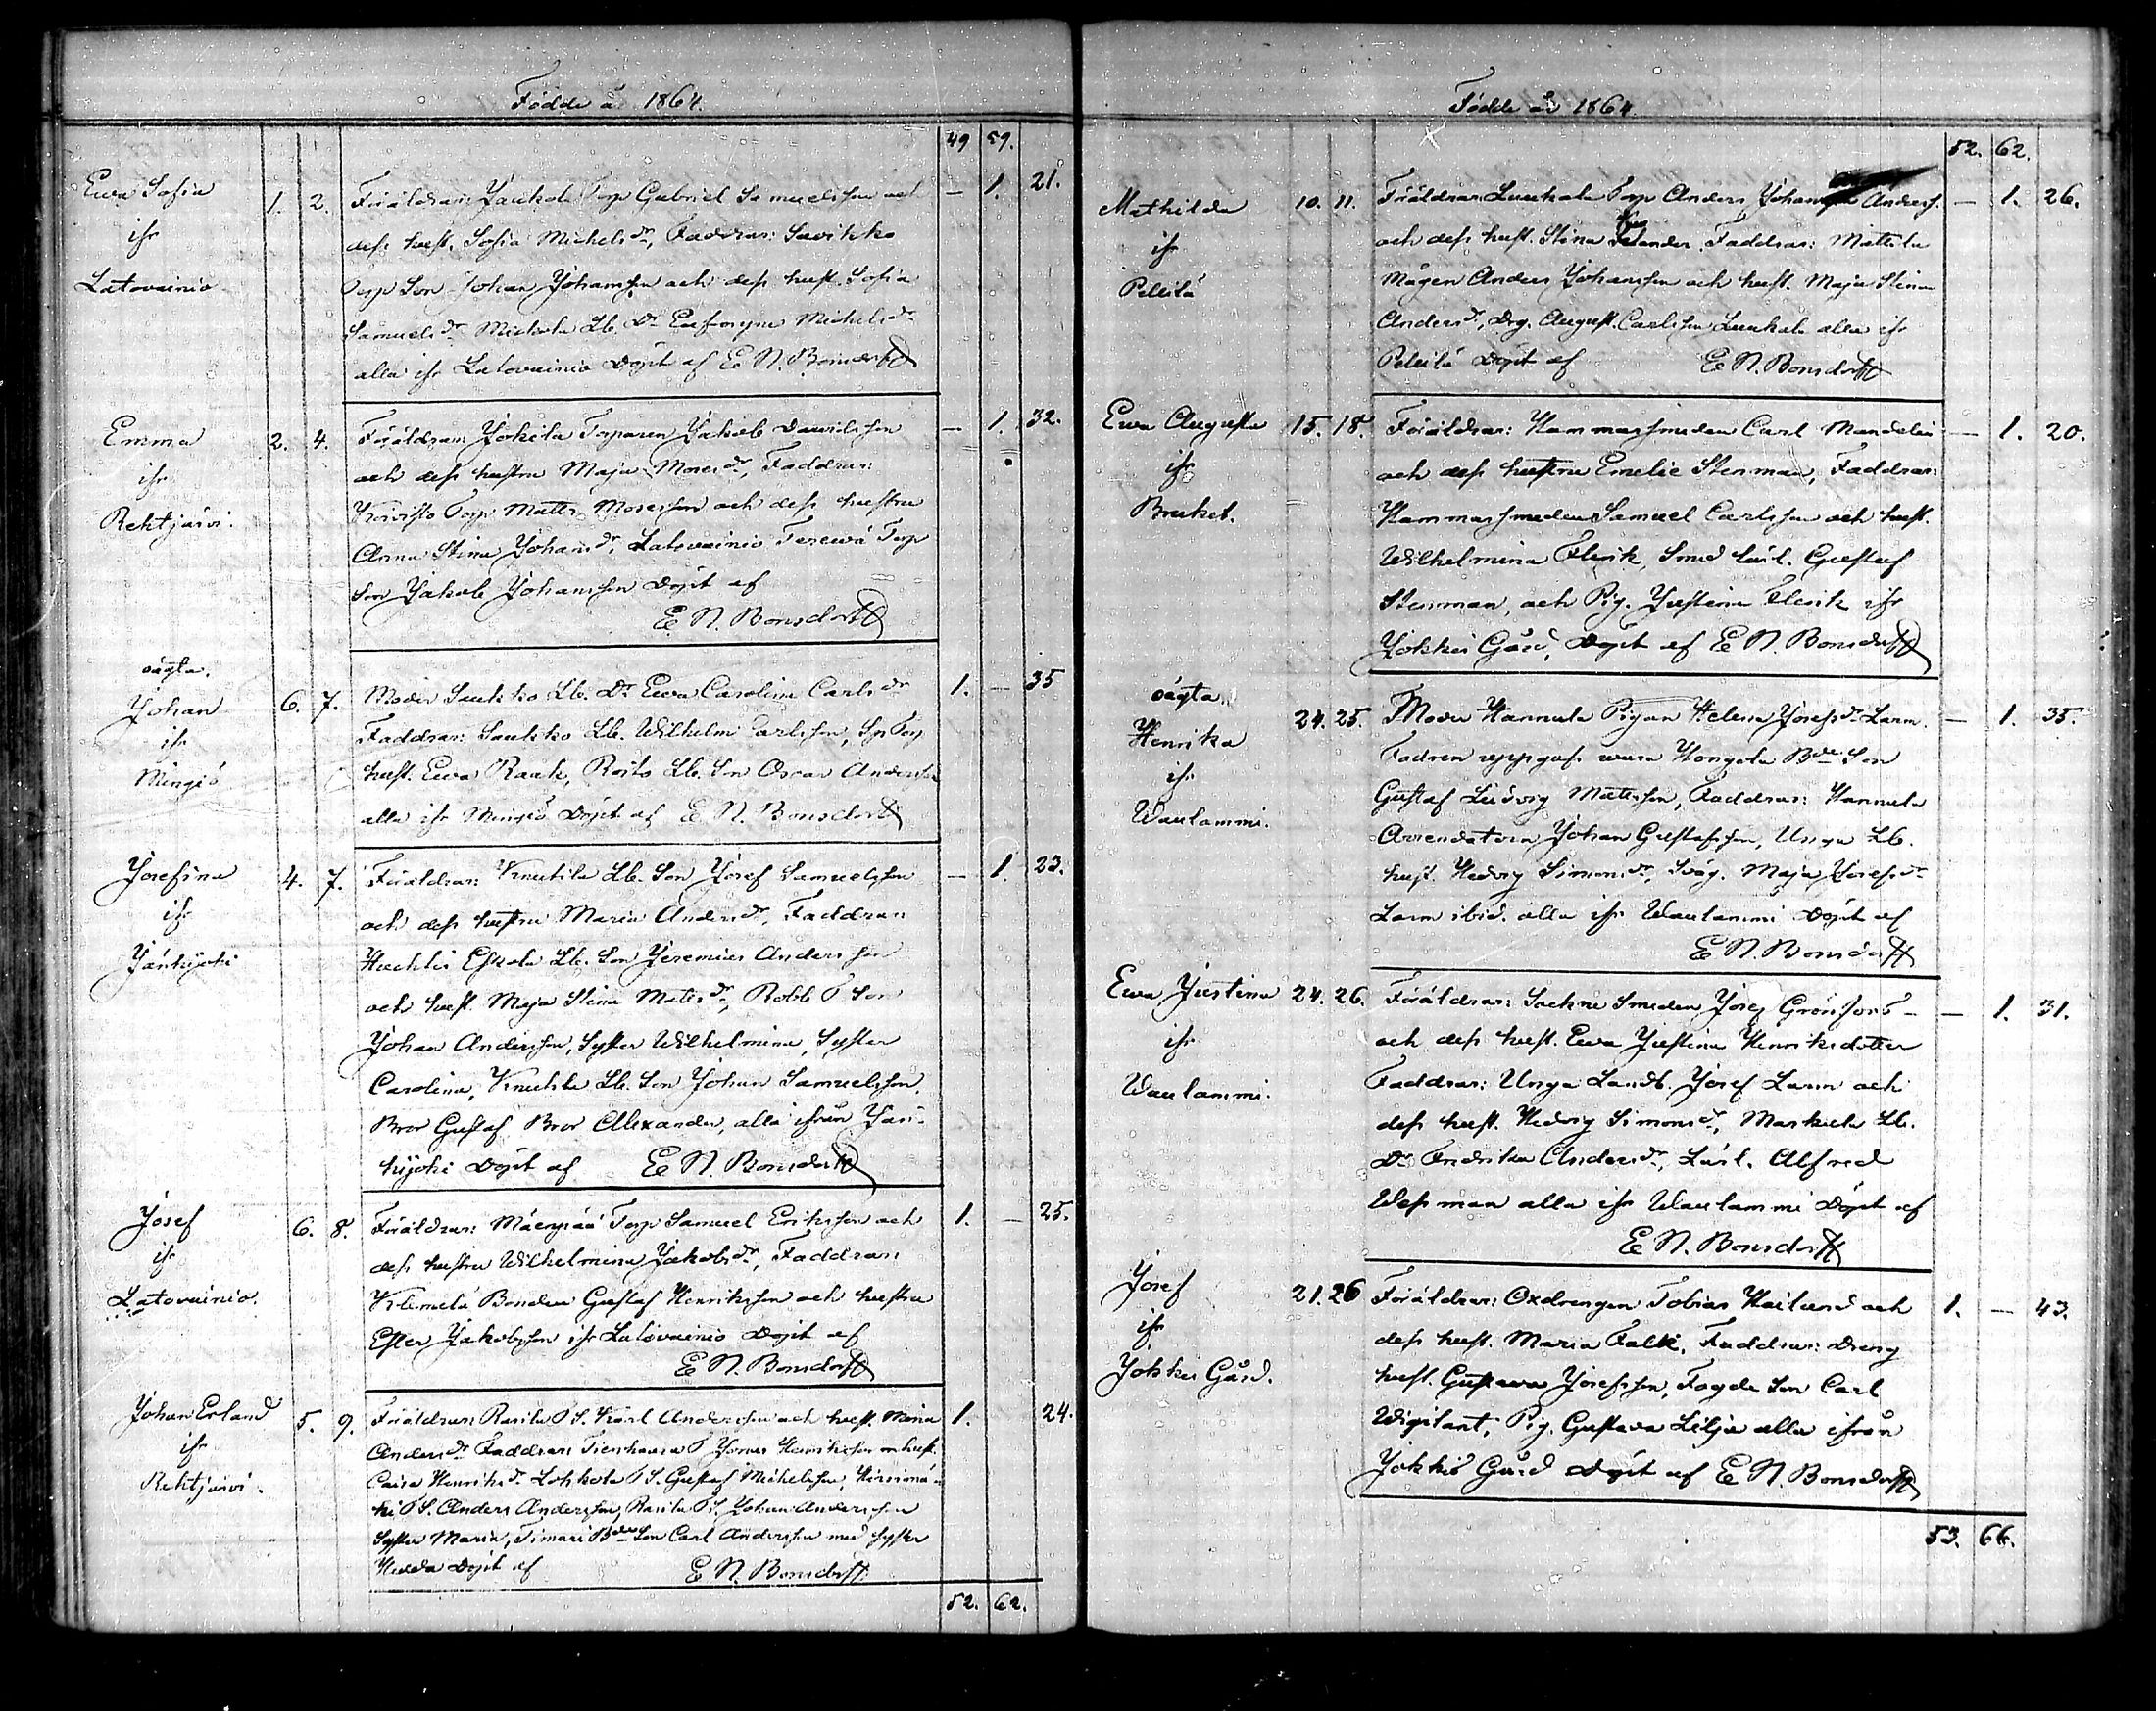 Födde år 1864.
49 59.
Ewa Sofia
ifr
Latovainio
1. 2.
Föräldrar: Torp Gabriel Samuelsson och
dess hust. Sofia Michels dr, Faddrar: Savikko
Torp Son Johan Johansson och dess hust. Sofia
Samuels dr Mickola Lb. Dr Eufrosyne Michels dr
alla ifr Latovainio Döpt af E N. Bonsdorff
— 1. 21.
Emma
ifr
Rehtjärvi.
2. 4.
Föräldrar: Jokela Torparen Jakob Davidsson
och dess hustru Maja Moses dr, Faddrar:
Torp. Matts Mosesson och dess hustru
Anna Stina Johans dr, Latovainio Terewä Torp
Son Jakob Johansson Döpt af
E. N. Bonsdorff
— 1. 32.
oägta.
Johan
ifr
Mingiö
6. 7.
Moder Saukko Lb. Dr Ewa Carolina Carls dr
Faddrar: Saukko Lb. Wilhelm Carlsson, Torp
hust. Ewa Rauk, Lb. Son Oscar Andersson
alla ifr Mingiö Döpt af E. N. Bonsdorff
1. — 35
Josefina
ifr
Jänhijoki
4. 7.
Föräldrar: Knuutila Lb. Son Josef Samuelsson
och dess hustru Maria Anders dr, Faddrar:
Eskola Lb. Son Jeremias Andersson
och hust. Maja Stina Matts dr, Robb T Son
Johan Andersson, Syster Wilhelmina, Syster
Carolina, Knuutila Lb. Son Johan Samuelsson.
Bror Gustaf Bror Alexander, alla ifrån Jän-
hijoki Döpt af E N. Bonsdorff
— 1. 23.
Josef
ifr
Latovainio.
6. 8.
Föräldrar: Mäenpää Torp Samuel Eriksson och
dess hustru Wilhelmina Jakobs dr, Faddrar:
Klemelä Bonden Gustaf Henriksson och hustru
Ester Jakobsson ifr Latovainio Döpt af
E N. Bonsdorff
1. — 25.
Johan Erland
ifr
Rehtjärvi.
5. 9.
Föräldrar: Rasila T S. Karl Andersson och hust. Mina
Anders dr Faddrar: Tienhaara T Jonas Henriksson hust.
Caisa Henriks dr Lokkola T S. Gustaf Michelsson,
ki T S. Anders Andersson, Rasila T S. Johan Andersson
Syster Maria, Timari Bde Son Carl Andersson med syster
Hedda Döpt af E N. Bonsdorff.
1. 24.
52. 62.
Födde år 1864.
52. 62.
Mathilda
ifr
Pellilä
10. 11.
Föräldrar: Luukala Torp Anders Anderss.
och dess hust. Stina Faddrar: Mattila
Mågen Anders Johansson och hust. Maja Stina
Anders dr, Drg. August Carlsson Luukala alla ifr
Pellilä Döpt af E N. Bonsdorff
— 1. 26.
Ewa Augusta
ifr
Bruket.
15. 18.
Föräldrar: Hammarsmeden Carl Mandelin
och dess hustru Emelie Stenman, Faddrar:
Hammarsmeden Samuel Carlsson och hust.
Wilhelmina Flenk, Smed lärl. Gustaf
Stenman, och Pig. Justina Flenk ifr
Jokkis Gård, Döpt af E N. Bonsdorff
— 1. 20.
oägta.
Henrika
ifr
Waulammi.
24. 25.
Moder Hannula Pigan Helena Josefs dr Larm.
Fadren uppgafs vara Hongola Bde Son
Gustaf Ludvig Mattsson, Faddrar: Hannula
Arrendatorn Johan Gustafsson, Unga Lb.
hust. Hedvig Simons dr, Sväg. Maja Josefs dr
Larm ibid. alla ifr Waulammi Döpt af
E N. Bonsdorff
— 1. 35.
Ewa Justina
ifr
Waulammi.
24. 26.
Föräldrar: Sockne Smeden Josef Grönfors
och dess hust. Ewa Justina Henriksdotter
Faddrar: Unga Landb. Josef Larm och
dess hust. Hedvig Simons dr, Markula Lb.
Dr Fredrika Anders dr, Lärl. Alfred
Wessman alla ifr Waulammi Döpt af
E N. Bonsdorff
— 1. 31.
Josef
ifr
Jokkis Gård.
21. 26
Föräldrar: Oxdrengen Tobias Hailund och
dess hust. Maria Falk, Faddrar: Dreng
hust. Gustava Josefsson, Fogde Son Carl
Wigilant, Pig. Gustava Lilja alla ifrån
Jokkis Gård Döpt af E N. Bonsdorff
1. — 43.
53. 66.